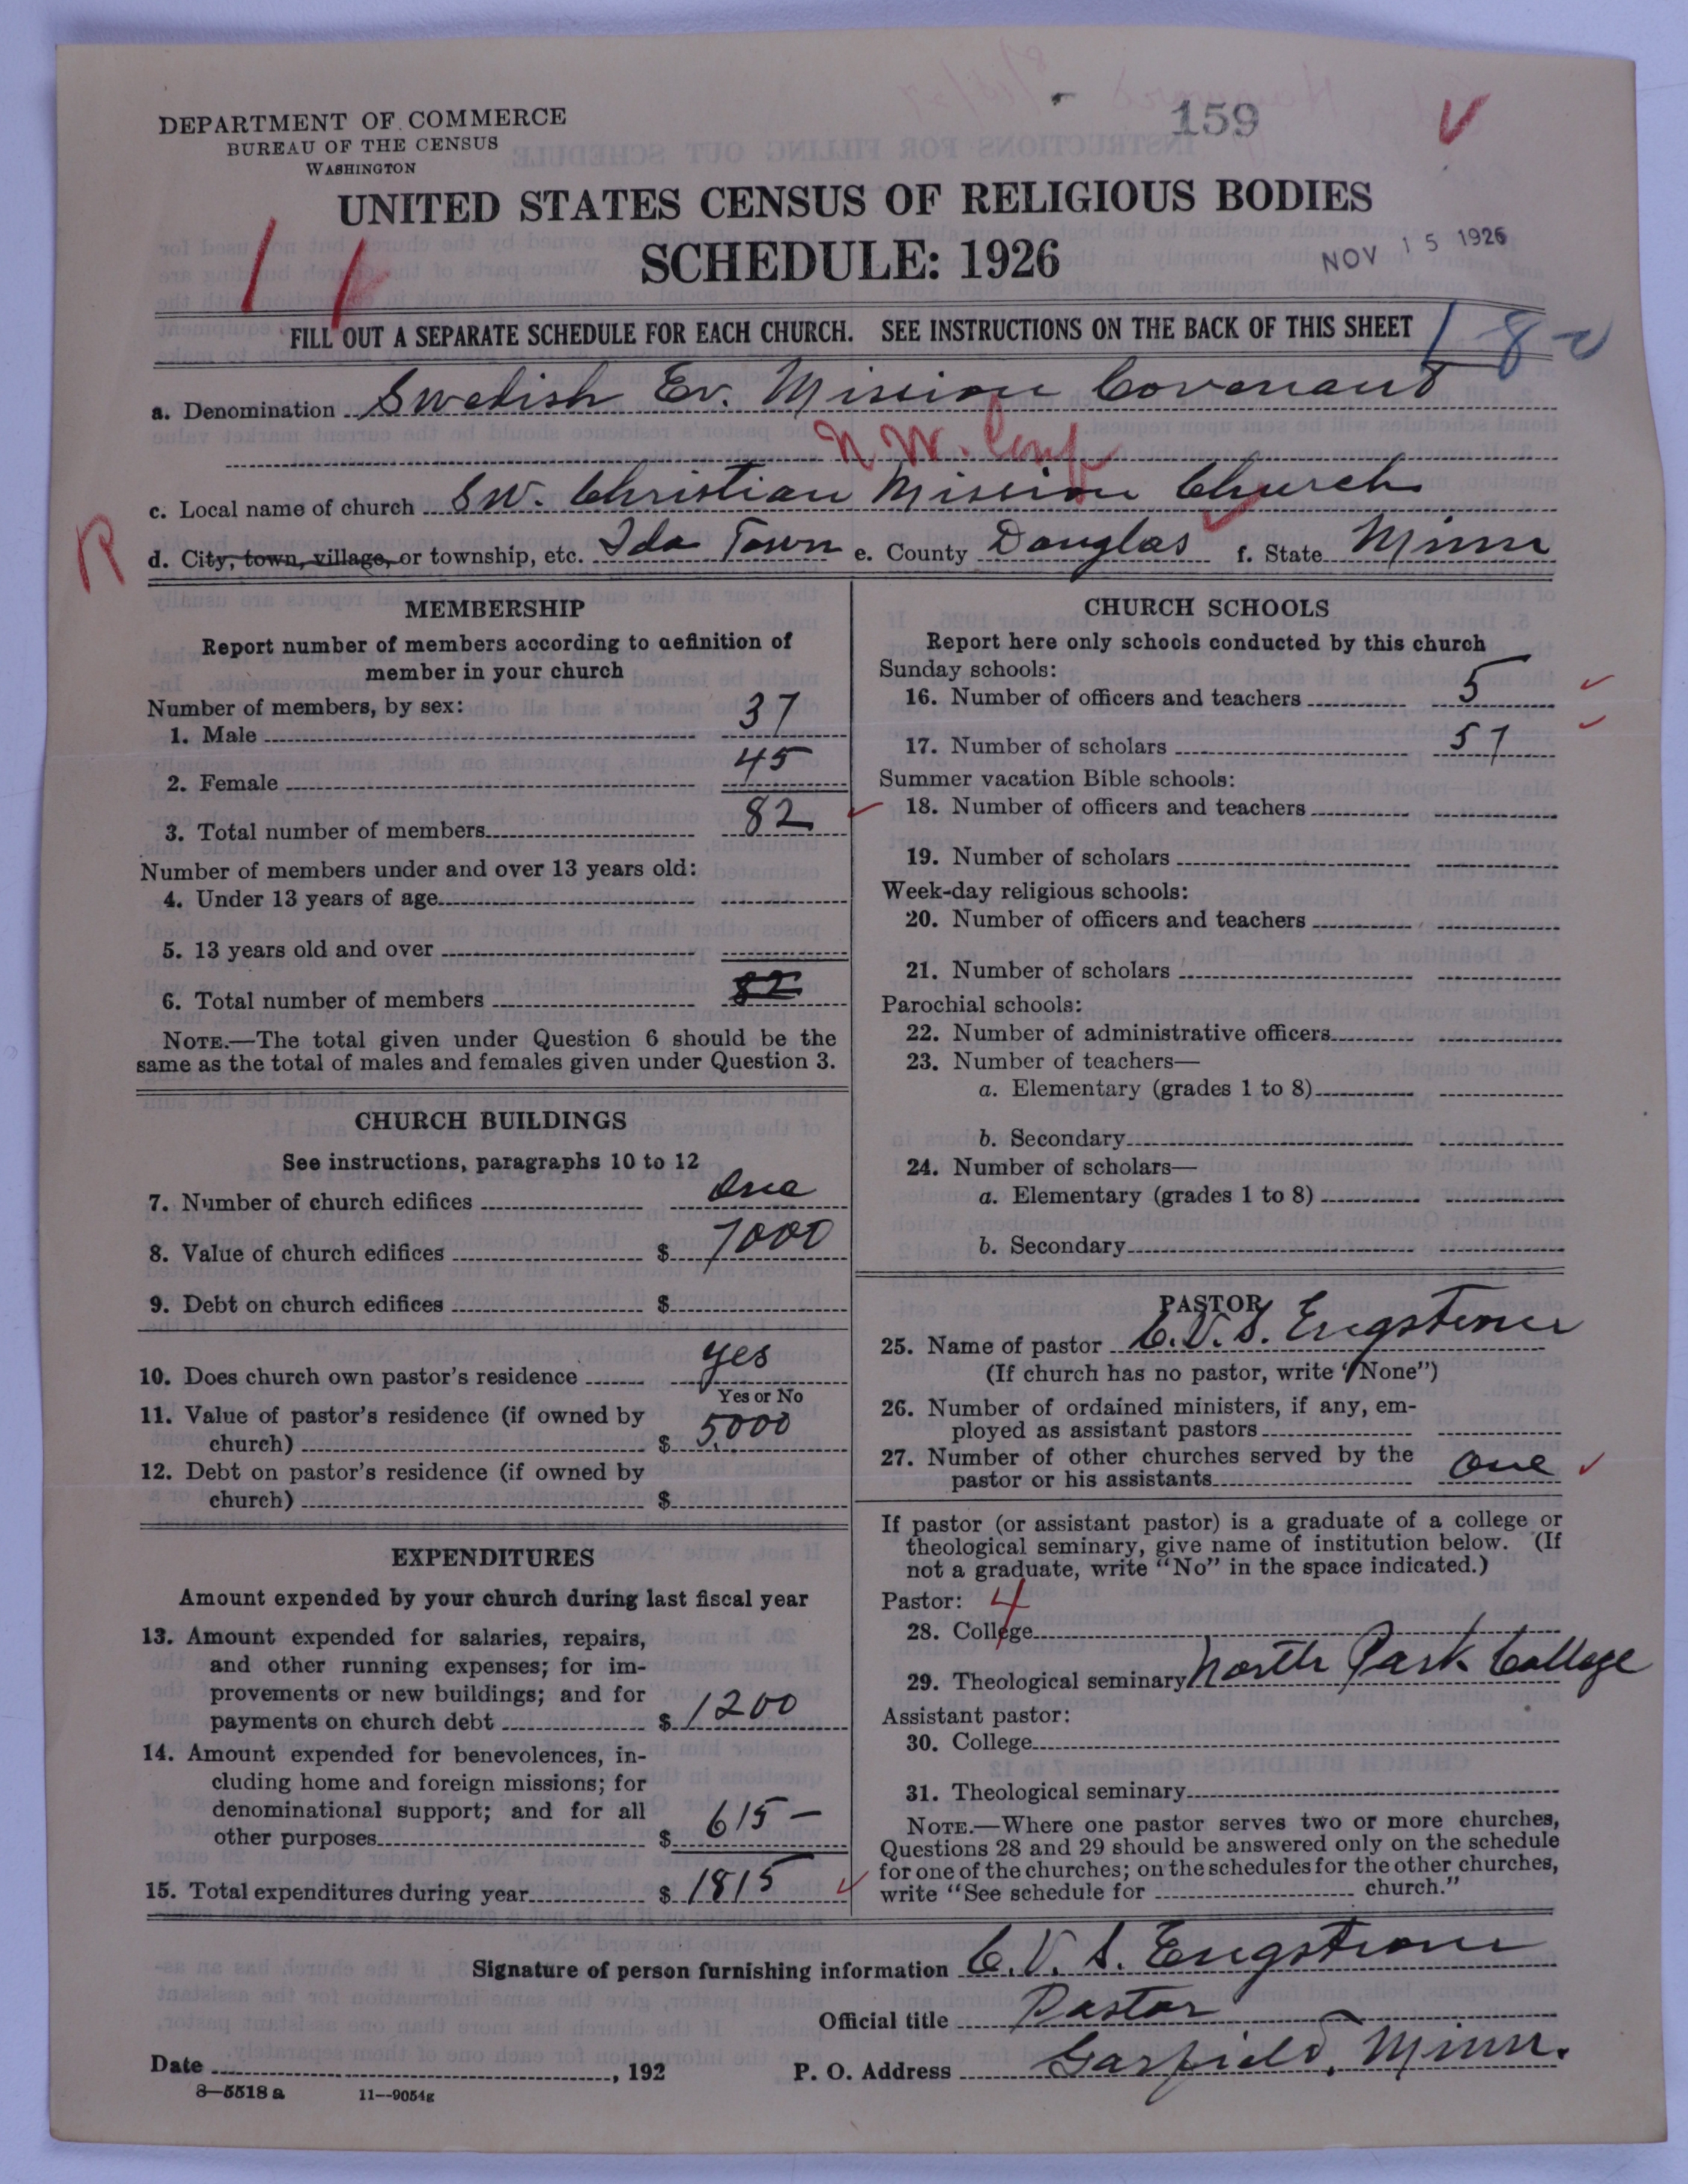 159
DEPARTMENT OF COMMERCE
BUREAU OF THE CENSUS
WASHINGTON
UNITED STATES CENSUS OF RELIGIOUS BODIES
SCHEDULE: 1926
NOV 15 1926
FILL OUT A SEPARATE SCHEDULE FOR EACH CHURCH. SEE INSTRUCTIONS ON THE BACK OF THIS SHEET
a. Denomination Swedish Ev. Mission Covenant
N.W. Conf
c. Local name of church Sw. Christian Mission Church
R
d. City, town, village, or township, etc. Ida Town e. County Douglas f. State Minn
MEMBERSHIP
Report number of members according to definition of
member in your church
Number of members, by sex:
1. Male 37
2. Female 45
3. Total number of members 82
Number of members under and over 13 years old:
4. Under 13 years of age
5. 13 years old and over
6. Total number of members 82
NOTE.—The total given under Question 6 should be the
same as the total of males and females given under Question 3.
CHURCH BUILDINGS
See instructions, paragraphs 10 to 12
7. Number of church edifices One
8. Value of church edifices $ 7000
9. Debt on church edifices $
10. Does church own pastor's residence yes
Yes or No
11. Value of pastor's residence (if owned by
church) $ 5000
12. Debt on pastor's residence (if owned by
church) $
EXPENDITURES
Amount expended by your church during last fiscal year
13. Amount expended for salaries, repairs,
and other running expenses; for im-
provements or new buildings; and for
payments on church debt $ 1200
14. Amount expended for benevolences, in-
cluding home and foreign missions; for
denominational support; and for all
other purposes $ 615 —
15. Total expenditures during year $ 1815
CHURCH SCHOOLS
Report here only schools conducted by this church
Sunday schools:
16. Number of officers and teachers 5
17. Number of scholars 57
Summer vacation Bible schools:
18. Number of officers and teachers
19. Number of scholars
Week-day religious schools:
20. Number of officers and teachers
21. Number of scholars
Parochial schools:
22. Number of administrative officers
23. Number of teachers—
a. Elementary (grades 1 to 8)
b. Secondary
24. Number of scholars—
a. Elementary (grades 1 to 8)
b. Secondary
PASTOR
25. Name of pastor C.V.S. Engstrom
(If church has no pastor, write "None")
26. Number of ordained ministers, if any, em-
ployed as assistant pastors
27. Number of other churches served by the
pastor or his assistants One
If pastor (or assistant pastor) is a graduate of a college or
theological seminary, give name of institution below. (If
not a graduate, write "No" in the space indicated.)
Pastor: 4
28. College
29. Theological seminary North Park College
Assistant pastor:
30. College
31. Theological seminary
NOTE.—Where one pastor serves two or more churches,
Questions 28 and 29 should be answered only on the schedule
for one of the churches; on the schedules for the other churches,
write "See schedule for church."
Signature of person furnishing information C.V.S. Engstrom
Official title Pastor
Date , 192 P. O. Address Garfield, Minn.
8—5518 a 11—9054g